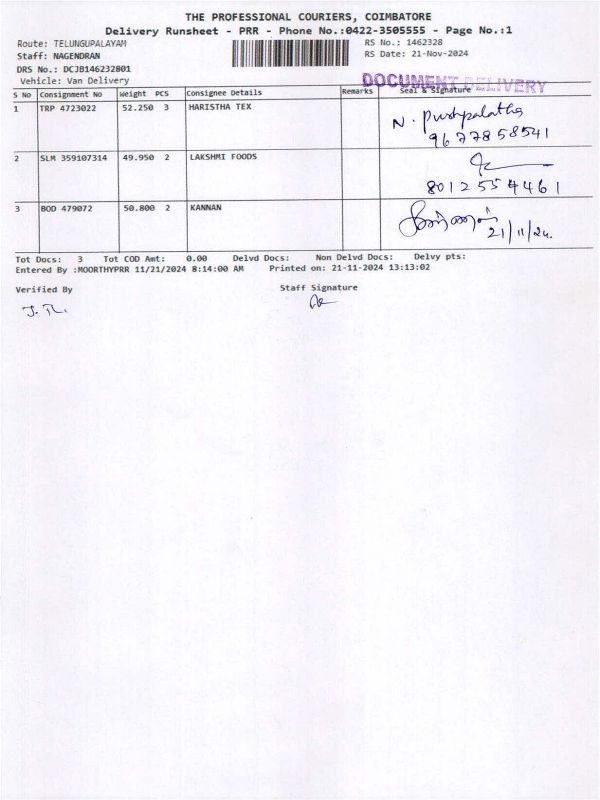 THE PROFESSIONAL COURIERS, COIMBATORE
Delivery Runsheet - PRR - Phone No.:0422-3505555 - Page No.:1
Route: TELUNGUPALAYAM RS No.: 1462328
Staff: NAGENDRAN RS Date: 21-Nov-2024
DRS No.: DCJB146232801
Vehicle: Van Delivery DOCUMENT DELIVERY
S No Consignment No Weight PCS Consignee Details Remarks Seal & Signature
1 TRP 4723022 52.250 3 HARISTHA TEX N. Pushpalatha
9677858541
2 SLM 359107314 49.950 2 LAKSHMI FOODS
8012554461
3 BOD 479072 50.800 2 KANNAN
21/11/24.
Tot Docs: 3 Tot COD Amt: 0.00 Delvd Docs: Non Delvd Docs: Delvy pts:
Entered By :MOORTHYPRR 11/21/2024 8:14:00 AM Printed on: 21-11-2024 13:13:02
Verified By Staff Signature